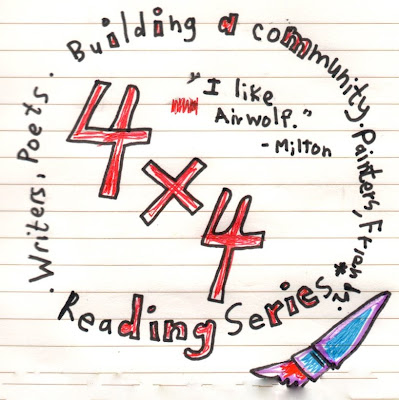 Building a community, Painters, Friends.
Writers, Poets.
4 x 4
"I like
Airwolf."
- Milton
Reading Series *